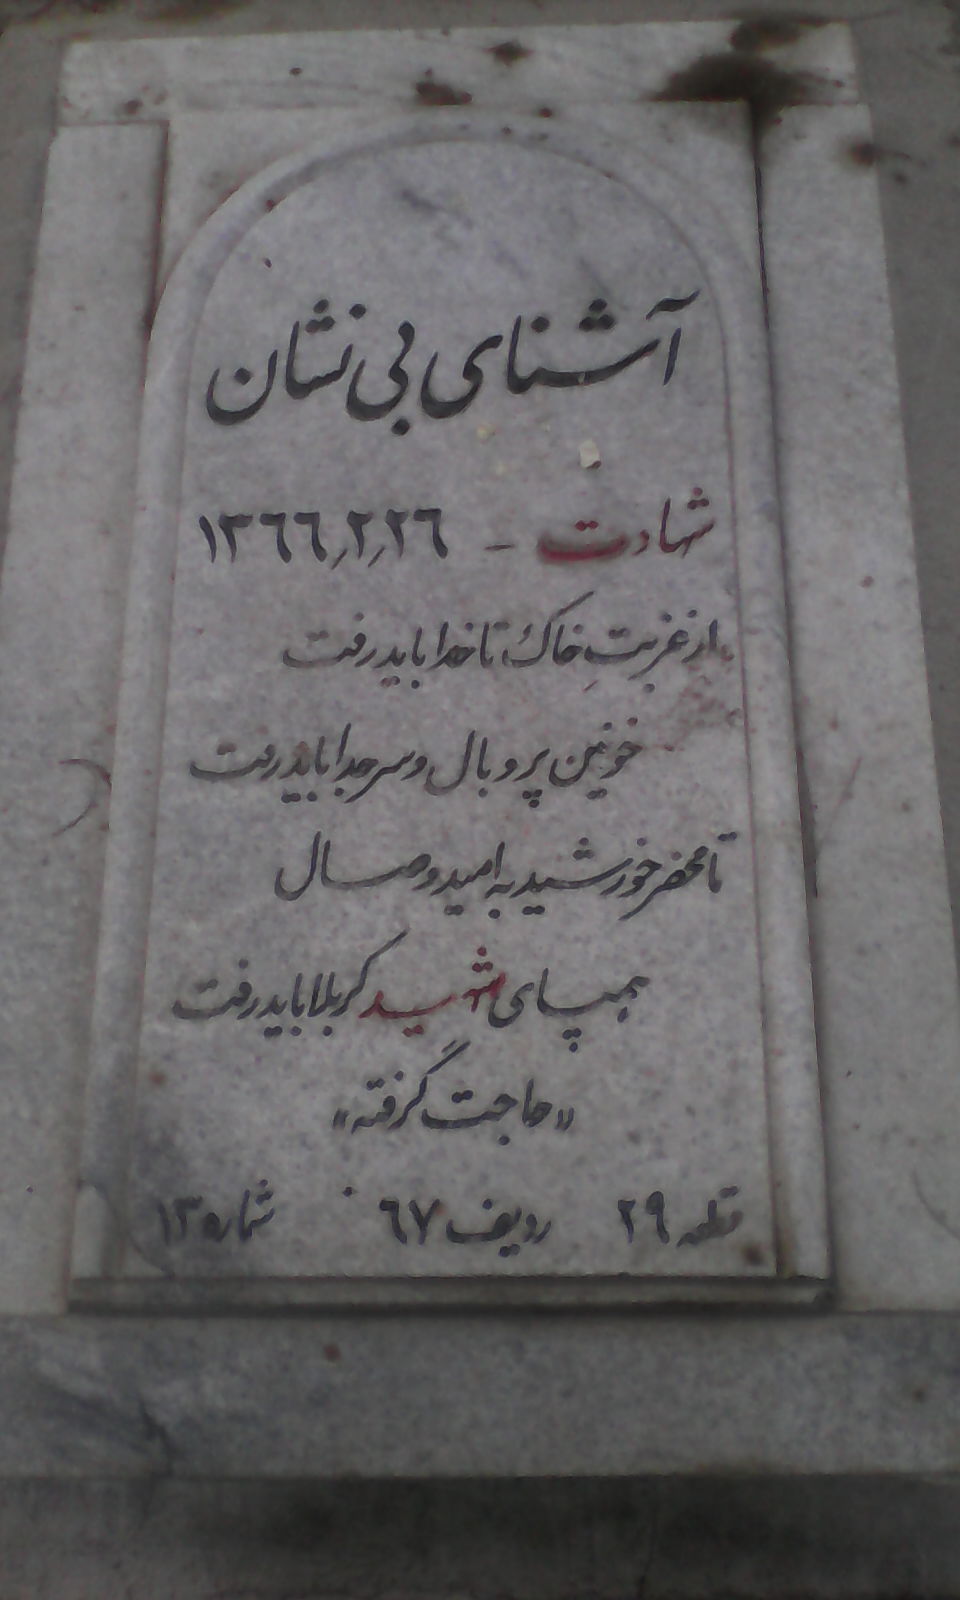 آشنای بی نشان
شهادت - ۱۳۶۶/۲/۲۶
از غربتِ خاک تا خدا باید رفت
خونین پر و بال و سر جدا باید رفت
تا محضر خورشید به امید وصال
همپای شهید کربلا باید رفت
«حاجت گرفته»
قطعه ۲۹ ردیف ۶۷ شماره ۱۳